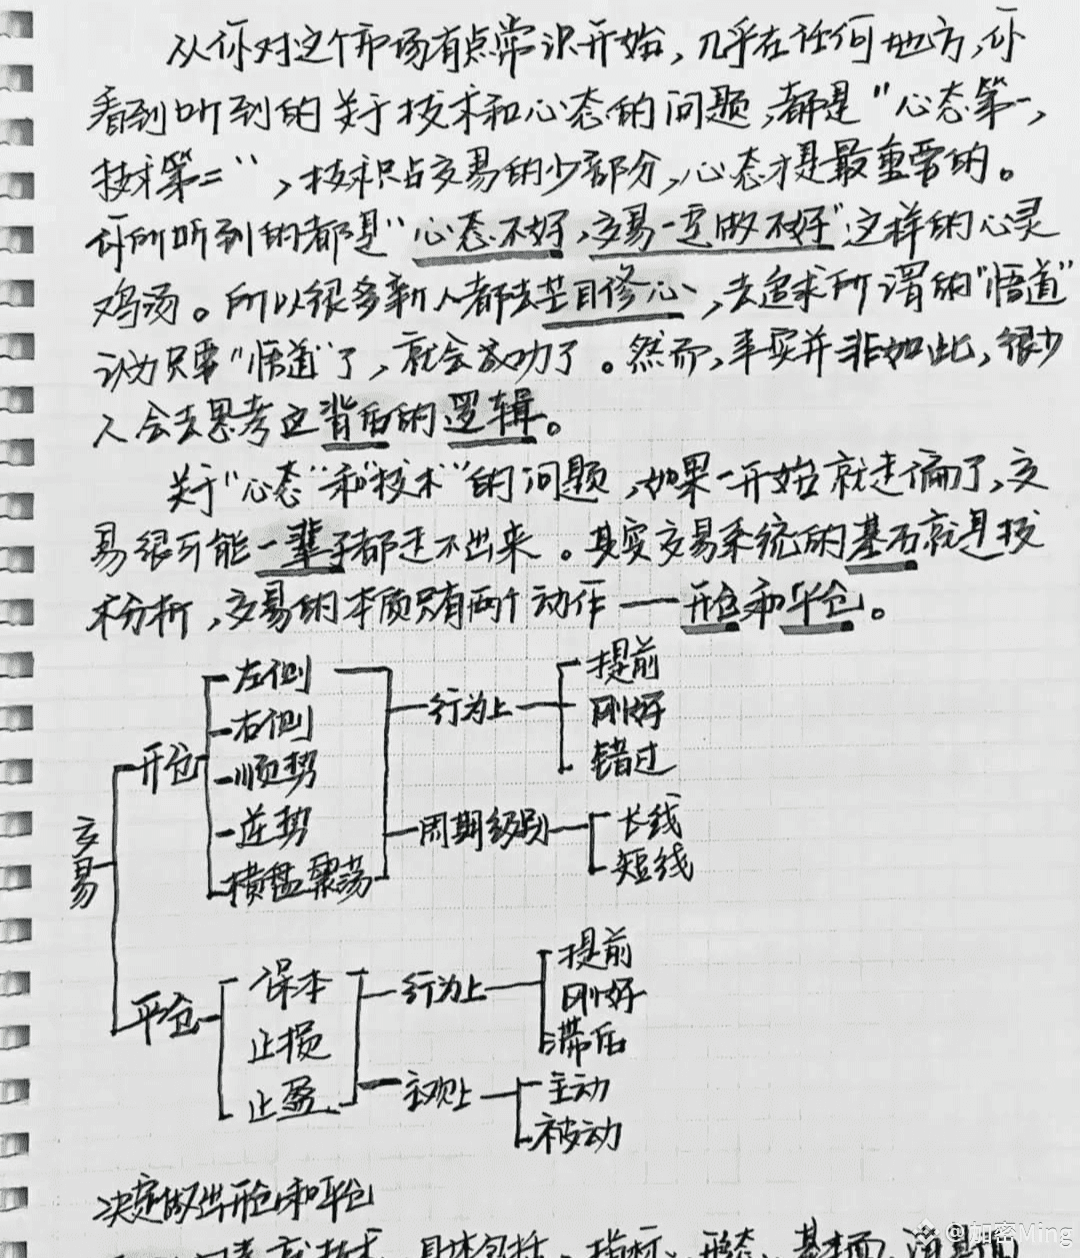 从你对这个市场有点常识开始，几乎在任何地方，你
看到听到的关于技术和心态的问题，都是"心态第一，
技术第二"，技术只占交易的少部分，心态才是最重要的。
你所听到的都是"心态不好，交易一定做不好"这样的心灵
鸡汤。所以很多新人都去盲目修心，去追求所谓的"悟道"
认为只要"悟道"了，就会成功了。然而，事实并非如此，很少
人会去思考这背后的逻辑。
关于"心态"和"技术"的问题，如果一开始就走偏了，交
易很可能一辈子都走不出来。其实交易系统的基石就是技
术分析，交易的本质只有两个动作——开仓和平仓。
交易
开仓
左侧
右侧
顺势
逆势
横盘震荡
行为上
提前
刚好
错过
周期级别
长线
短线
平仓
保本
止损
止盈
行为上
提前
刚好
滞后
主观上
主动
被动
决定做出开仓和平仓
技术，具体包括：指标、形态、基本面、消息
@加密Ming